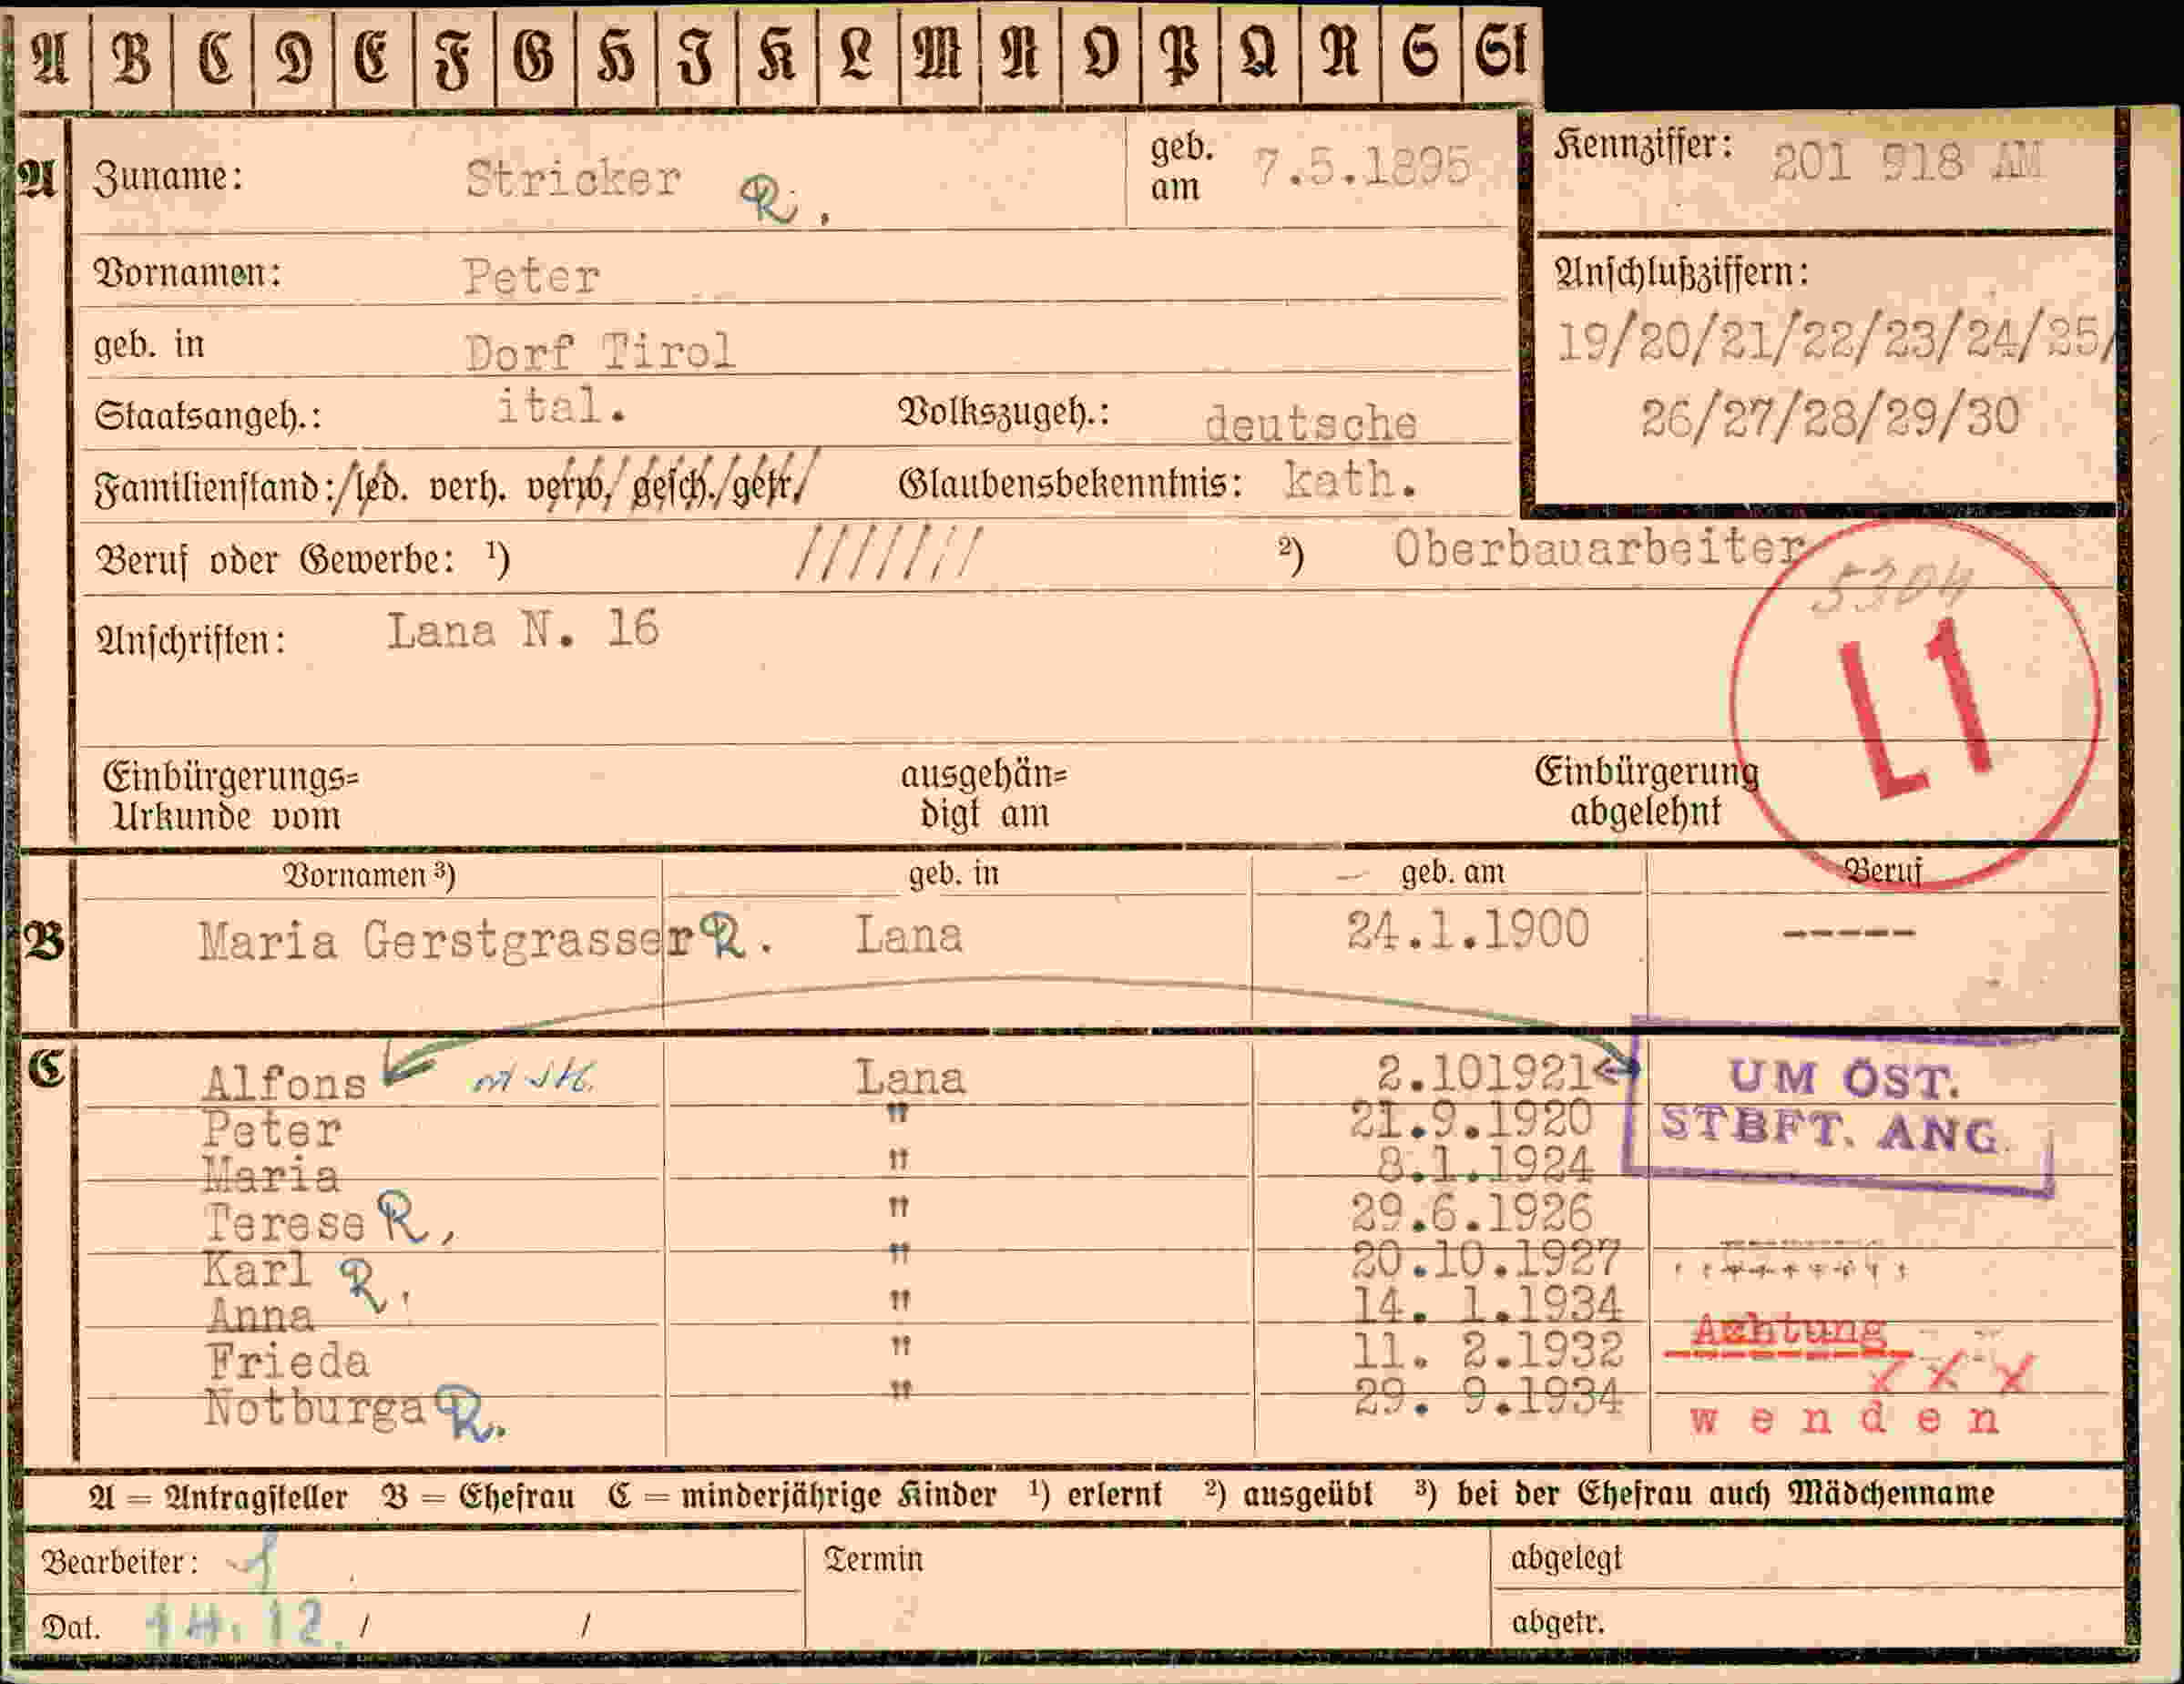 A B C D E F G H I K L M N O P Q R S St
A Zuname: Stricker R. geb. am 7.5.1895 Kennziffer: 201 918 AM
Vornamen: Peter Anschlußziffern:
geb. in Dorf Tirol 19/20/21/22/23/24/25/
Staatsangeh.: ital. Volkszugeh.: deutsche 26/27/28/29/30
Familienstand: led. verh. verw. gesch. getr. Glaubensbekenntnis: kath.
Beruf oder Gewerbe: ¹) /////// ²) Oberbauarbeiter
5304
Anschriften: Lana N. 16
L1
Einbürgerungs= ausgehän= Einbürgerung
Urkunde vom digt am abgelehnt
Vornamen ³) geb. in geb. am Beruf
B Maria Gerstgrasser R. Lana 24.1.1900 -----
C Alfons Lana 2.101921 UM ÖST.
Peter " 21.9.1920 STBFT. ANG.
Maria " 8.1.1924
Terese R. " 29.6.1926
Karl R. " 20.10.1927
Anna " 14. 1.1934 Achtung
Frieda " 11. 2.1932
Notburga R. " 29. 9.1934 w e n d e n
A = Antragsteller B = Ehefrau C = minderjährige Kinder ¹) erlernt ²) ausgeübt ³) bei der Ehefrau auch Mädchenname
Bearbeiter: Termin abgelegt
Dat. 14.12. / / abgetr.